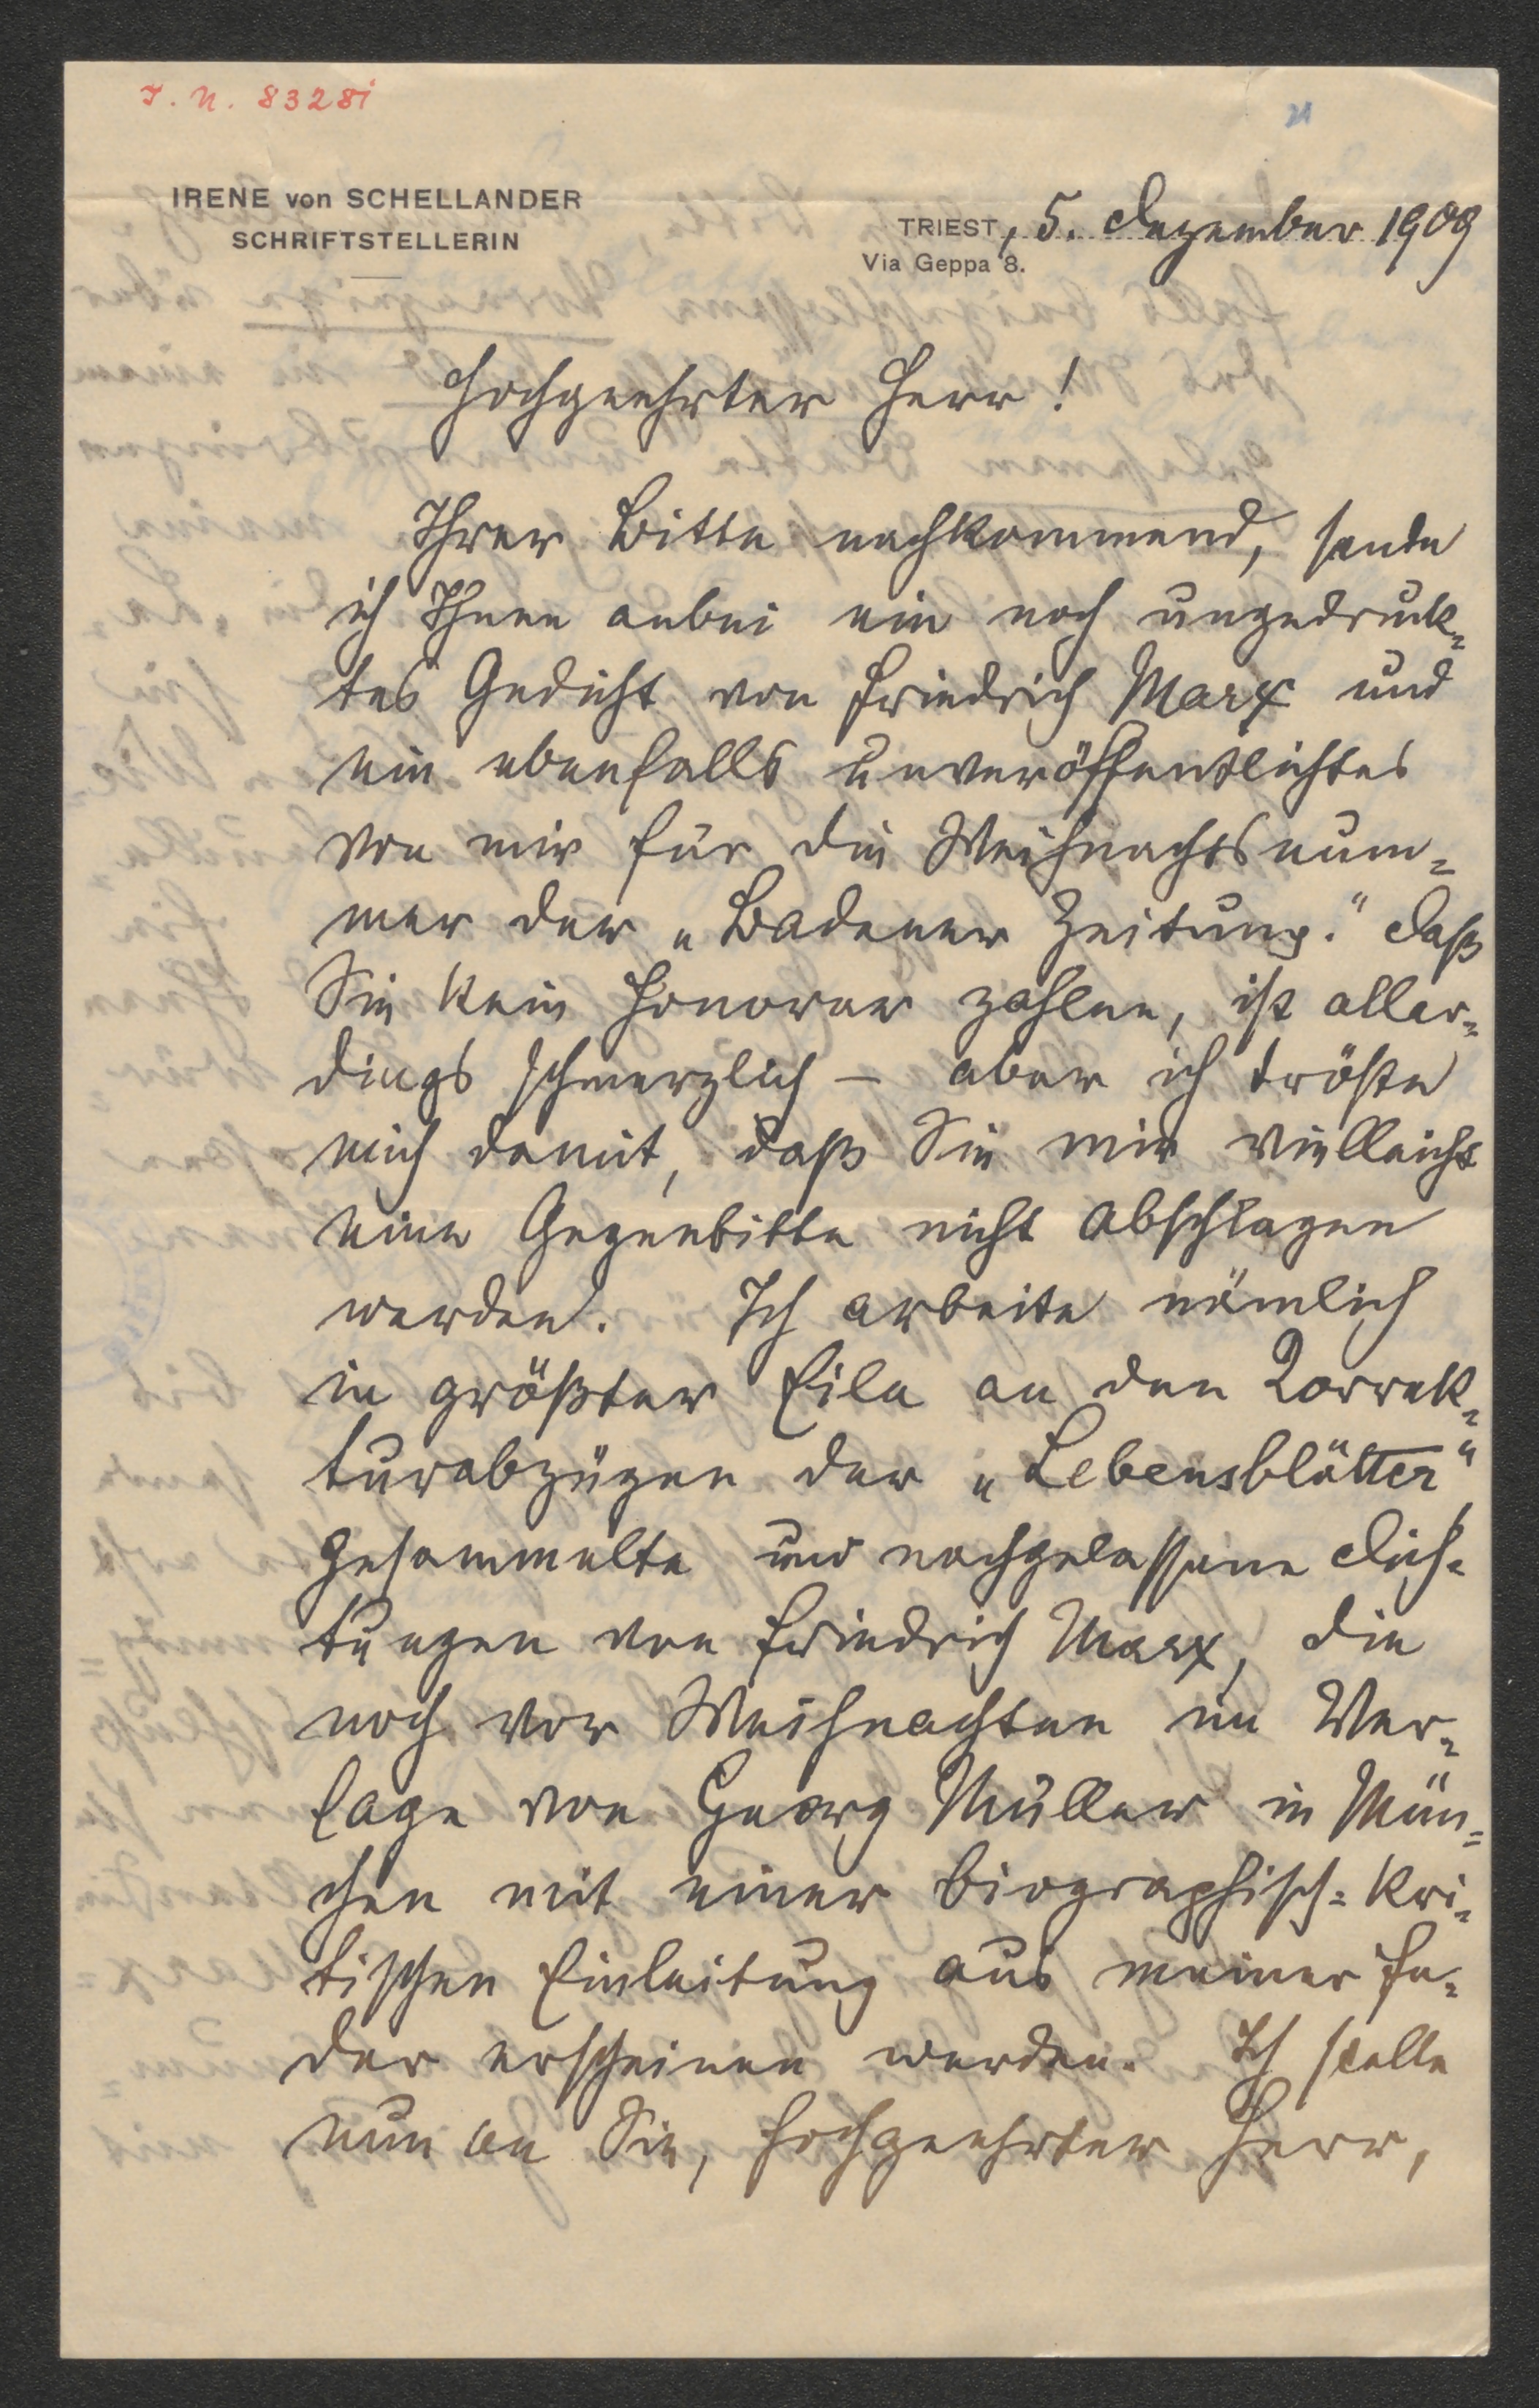 I. N. 83281
21
IRENE von SCHELLANDER
SCHRIFTSTELLERIN
TRIEST, 5. Dezember 1909
Via Geppa 8.
Hochgeehrter Herr!
Ihrer Bitte nachkommend, sende
ich Ihnen anbei ein noch ungedruck-
tes Gedicht von Friedrich Marx und
ein ebenfalls unveröffentlichtes
von mir für die Weihnachtsnum-
mer der „Badener Zeitung." Daß
Sie kein Honorar zahlen, ist aller-
dings schmerzlich – aber ich tröste
mich damit, daß Sie mir vielleicht
eine Gegenbitte nicht abschlagen
werden. Ich arbeite nämlich
in größter Eile an den Korrek-
turabzügen der „Lebensblätter"
Gesammelte und nachgelassene Dich-
tungen von Friedrich Marx, die
noch vor Weihnachten im Ver-
lage von Georg Müller in Mün-
chen mit einer biographisch-kri-
tischen Einleitung aus meiner Fe-
der erscheinen werden. Ich stelle
nun an Sie, hochgeehrter Herr,